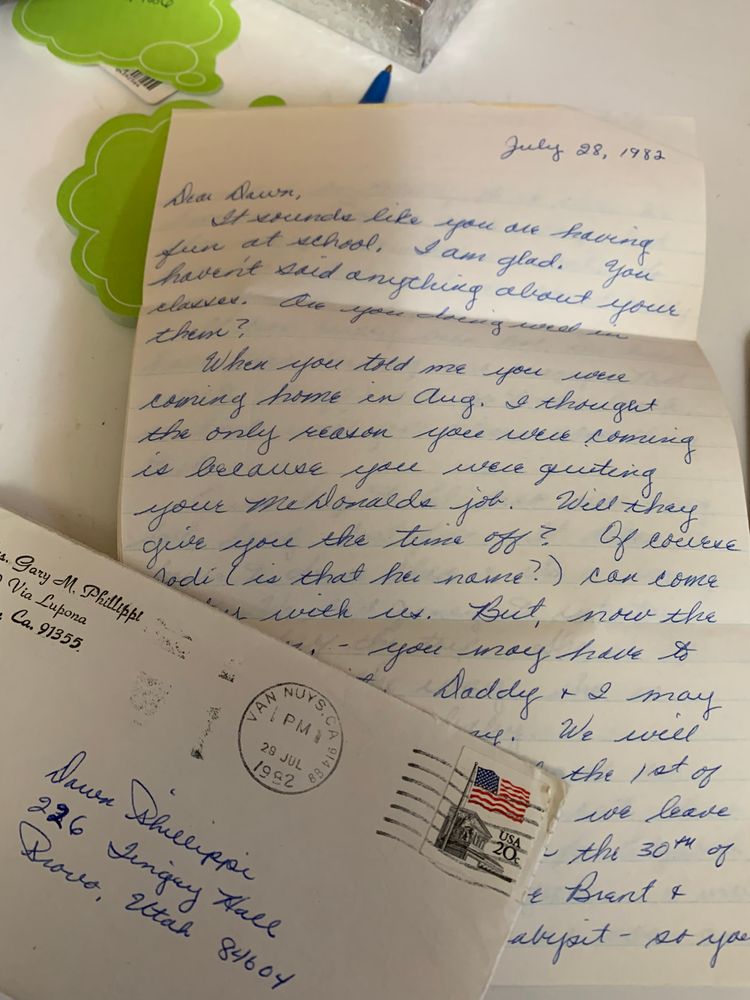 July 28, 1982
Dear Dawn,
It sounds like you are having
fun at school. I am glad. You
haven't said anything about your
classes. Are you doing well in
them?
When you told me you were
coming home in Aug. I thought
the only reason you were coming
is because you were quiting
your McDonalds job. Will they
give you the time off? Of course
Jodi (is that her name?) can come
with us. But, now the
- you may have to
Daddy + I may
We will
the 1st of
we leave
- the 30th of
Brent +
- so you
Gary M. Phillippi
Via Lupona
Ca. 91355
VAN NUYS, CA
PM
28 JUL
1982
USA
20c
Dawn Phillippi
226 Tingey Hall
Provo, Utah 84604